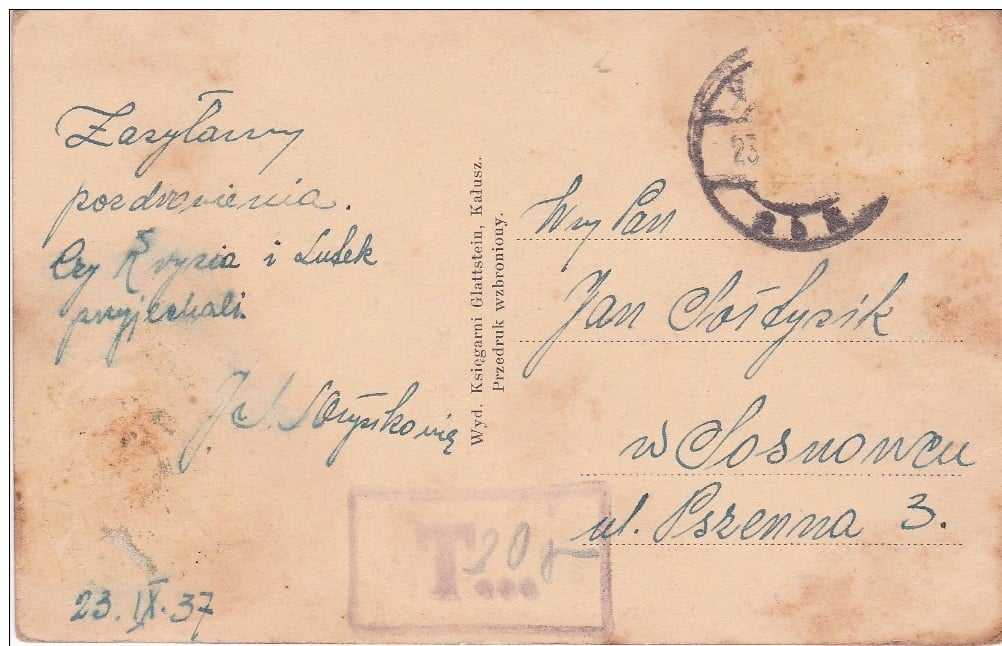 Zasyłamy
pozdrowienia.
Czy Krysia i Lutek
przyjechali.
Sołtysikowie
23.IX.37
Wyd. Księgarni Glattstein, Kałusz.
Przedruk wzbroniony.
23
Wny Pan
Jan Sołtysik
w Sosnowcu
ul. Pszenna 3.
T...